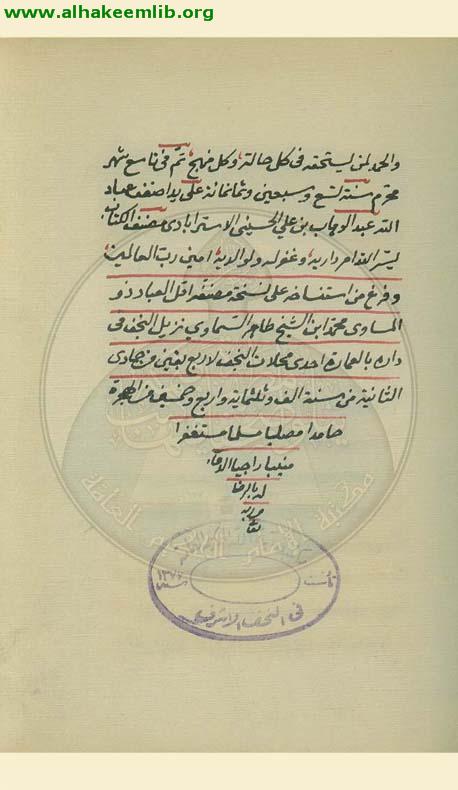 www.alhakeemlib.org
والحمد لمن يستحقه فى كل حالة، وكل منهج، تم فى تاسع شهر
محرم سنة تسع وسبعين وثمانمائة على يد اضعف عباد
الله عبد الوهاب بن علي الحسيني الاسترابادى مصنف الكتاب
يسر الله امر داريه، وغفر له ولوالديه امين رب العالمين،
وفرغ من استنساخه على نسخة مصنفه اقل العباد ذو
المساوى محمد ابن الشيخ طاهر السماوي نزيل النجف فى
داره بالعمارة احدى محلات النجف لاربع بقين من جمادى
الثانية من سنة الف وثلثماية واربع وخمسين من الهجرة
حامدا مصليا مسلما مستغفرا
منيبا راجيا الدعاء
له بالرضا
فى النجف الاشرف